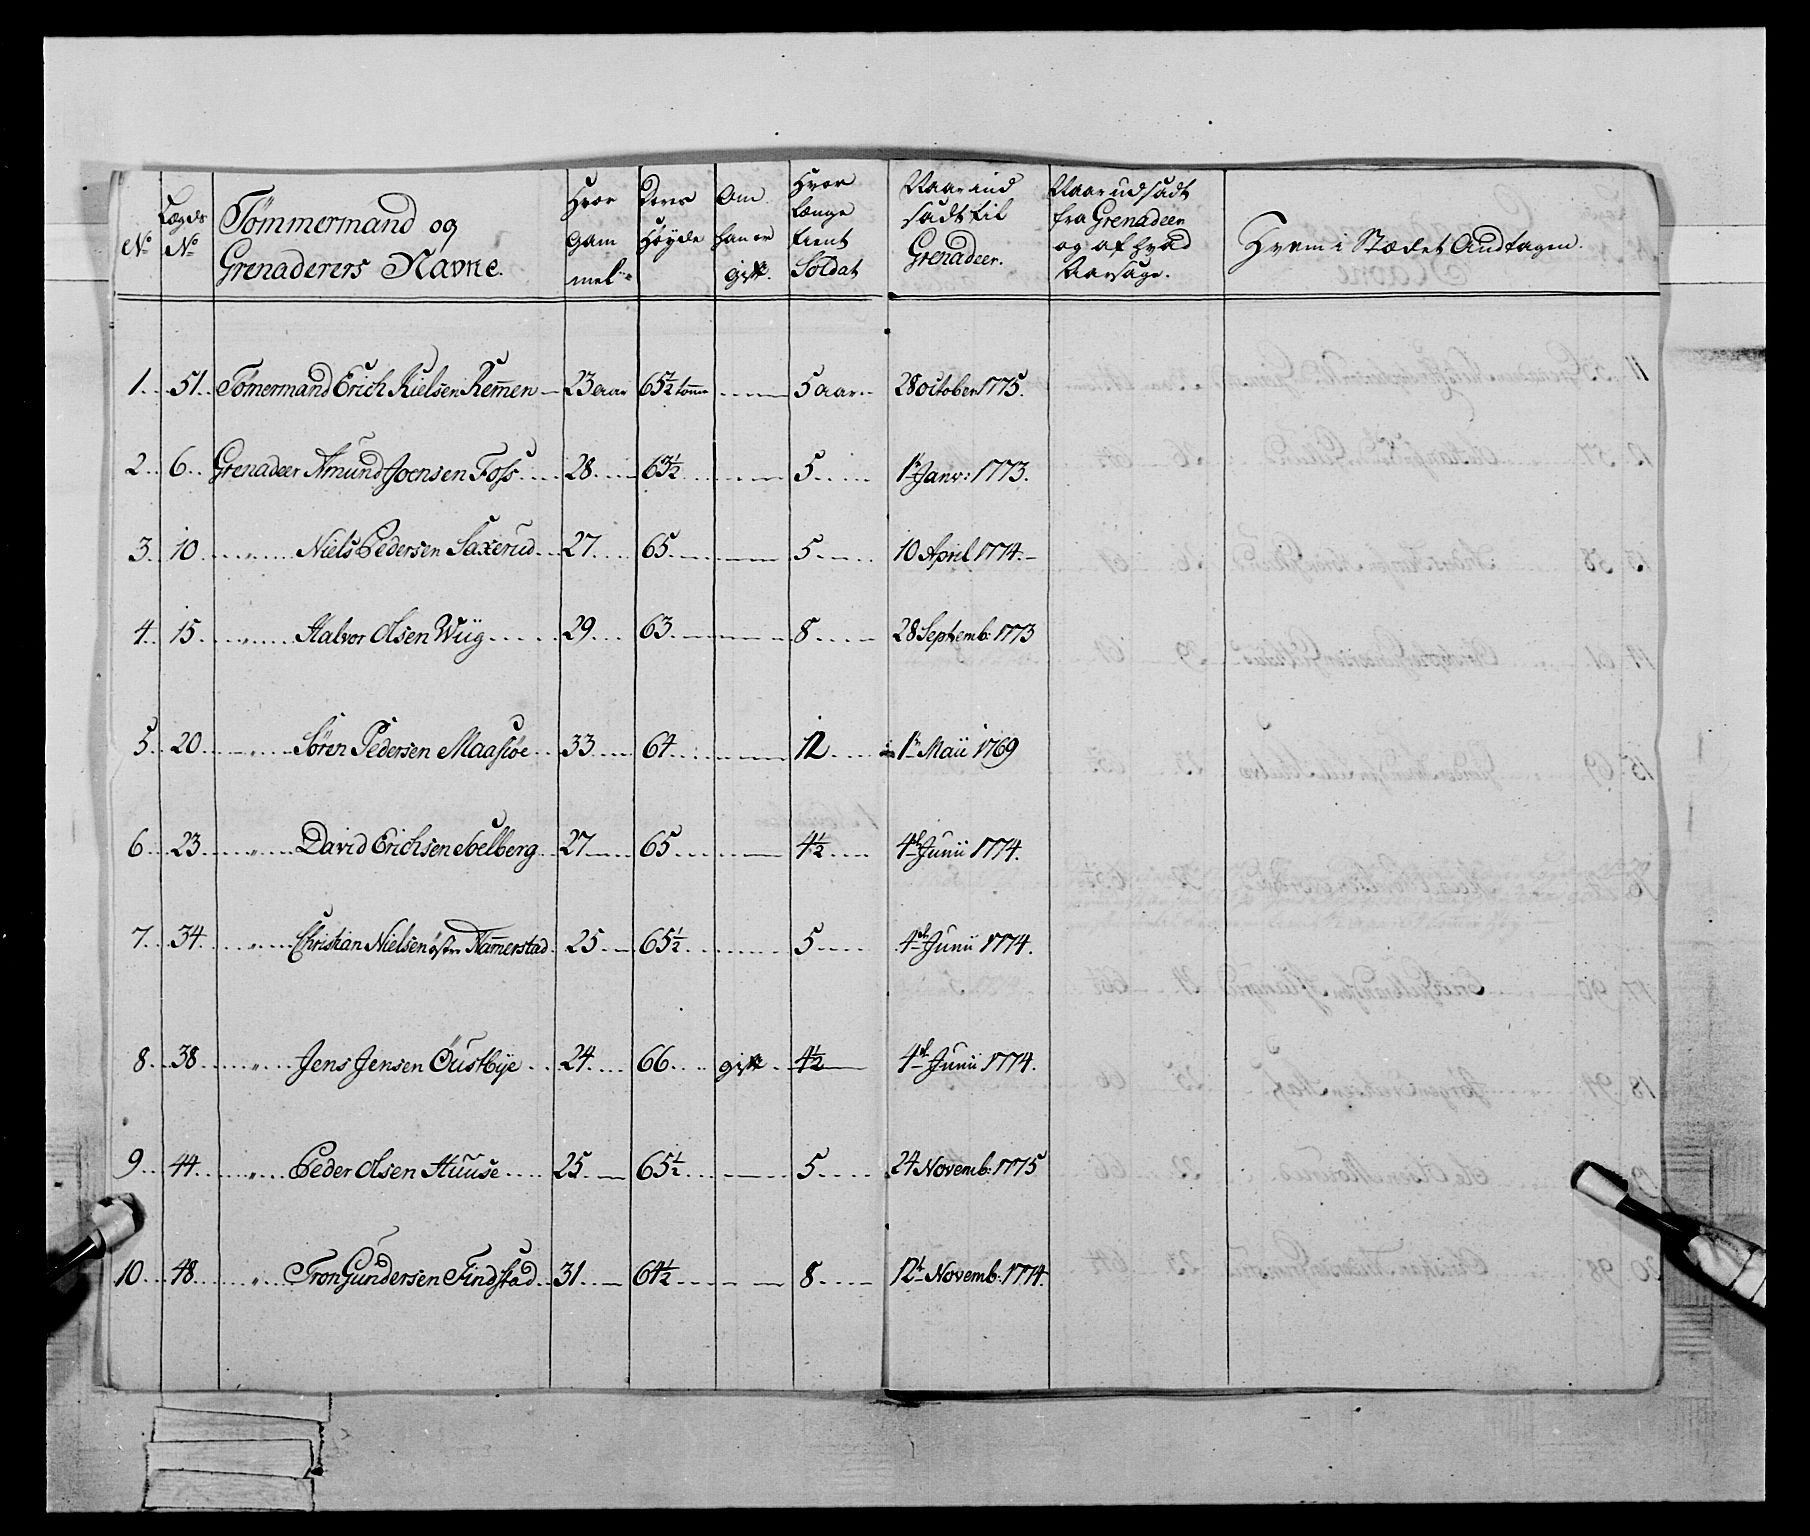 No
Lægds No
Tømmermænd og Grenaderers Navne.
Hvor gam mel
Deres Høyde
Om han er gift.
Hvor længe tient Soldat
Naar ind sadt til Grenadeer.
Naar udsadt fra Grenadeer og af hvad Aarsage.
Hvem i Stædet Andtagen.
1. 51. Tømermand Erich Nielsen Remen 23 aar 65½ tomme 5 aar 28 October 1775.
2. 6. Grenadeer Amund Joensen Foss 28 63½ 5 1te Janv: 1773.
3. 10 " Niels Pedersen Saxerud 27 65 5 10 April 1774.
4. 15. " Halvor Olsen Wiig 29 63 8 28 Septemb: 1773
5. 20 " Søren Pedersen Maasiøe 33 64 12 1te Maii 1769
6. 23 " David Erichsen Soelberg 27 65 4½ 4de Junii 1774.
7. 34. " Christian Nielsen østre Namerstad 25 65½ 5 4de Junii 1774.
8. 38 " Jens Jensen Oustbye 24 66 gift 4½ 4de Junii 1774.
9. 44. " Peder Olsen Huuse 25 65½ 5 24 Novemb: 1775
10. 48. " Tron Gundersen Findstad 31 64½ 8 12te Novemb: 1774.